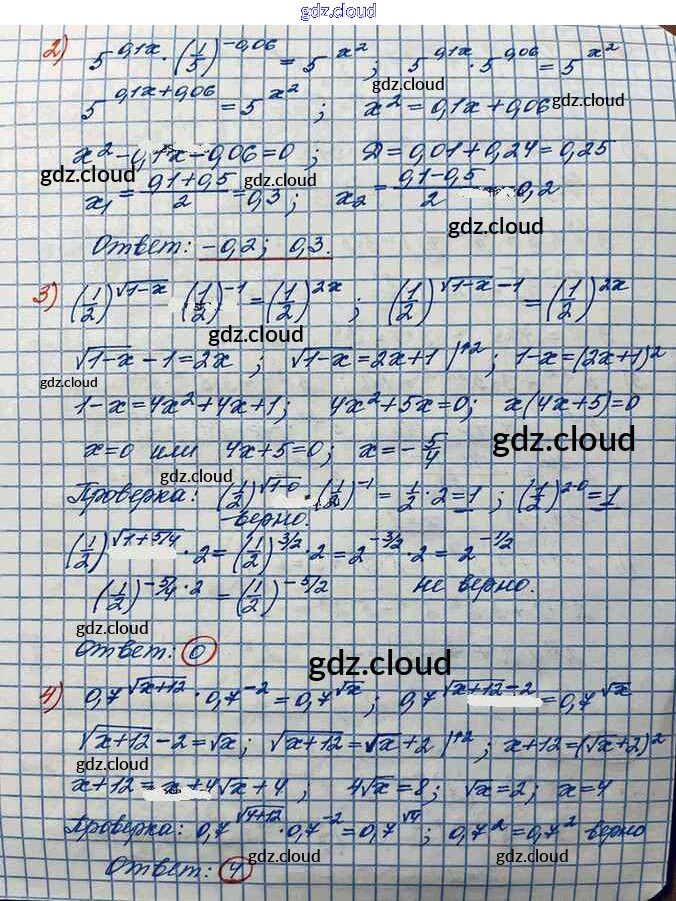 gdz.cloud
2) 5^{0,1x} · (1/5)^{-0,06} = 5^{x²} ; 5^{0,1x} · 5^{0,06} = 5^{x²}
gdz.cloud
5^{0,1x+0,06} = 5^{x²} ; x² = 0,1x + 0,06 gdz.cloud
x² - 0,1x - 0,06 = 0 ; D = 0,01 + 0,24 = 0,25
gdz.cloud gdz.cloud
x₁ = (0,1+0,5)/2 = 0,3 ; x₂ = (0,1-0,5)/2 0,2
gdz.cloud
Ответ: -0,2; 0,3.
3) (1/2)^{√(1-x)} (1/2)^{-1} = (1/2)^{2x} ; (1/2)^{√(1-x) - 1} = (1/2)^{2x}
gdz.cloud
√(1-x) - 1 = 2x ; √(1-x) = 2x+1 |↑2 ; 1-x = (2x+1)²
gdz.cloud
1-x = 4x² + 4x + 1; 4x² + 5x = 0; x(4x+5) = 0
x = 0 или 4x+5 = 0; x = -5/4 gdz.cloud
gdz.cloud
Проверка: (1/2)^{√(1-0)} · (1/2)^{-1} = 1/2 · 2 = 1 ; (1/2)^{2·0} = 1
- верно.
(1/2)^{√(1+5/4)} · 2 = (1/2)^{3/2} · 2 = 2^{-3/2} · 2 = 2^{-1/2}
gdz.cloud
(1/2)^{-5/4 · 2} = (1/2)^{-5/2} не верно.
gdz.cloud
Ответ: 0
gdz.cloud
4) 0,7^{√(x+12)} · 0,7^{-2} = 0,7^{√x} ; 0,7^{√(x+12) - 2} = 0,7^{√x}
gdz.cloud
√(x+12) - 2 = √x ; √(x+12) = √x + 2 |↑2 ; x+12 = (√x+2)²
x+12 = x + 4√x + 4 ; 4√x = 8; √x = 2; x = 4
gdz.cloud
Проверка: 0,7^{√(4+12)} · 0,7^{-2} = 0,7^{√4} ; 0,7² = 0,7² верно
Ответ: 4 gdz.cloud gdz.cloud